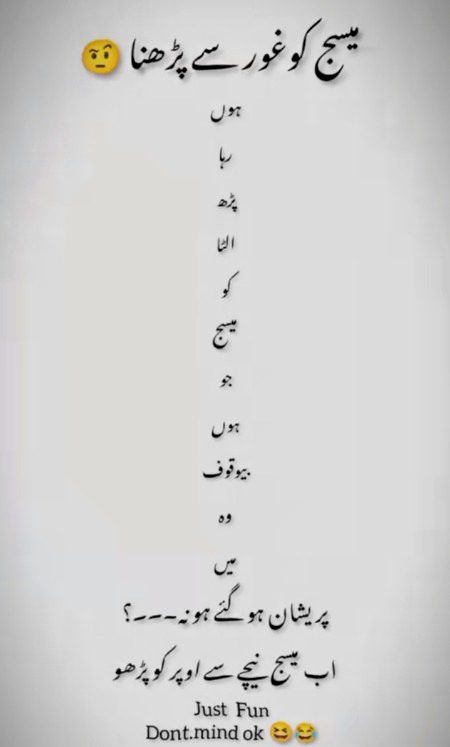 میسج کو غور سے پڑھنا 🤨
ہوں
رہا
پڑھ
الٹا
کو
میسج
جو
ہوں
بیوقوف
وہ
میں
پریشان ہو گئے ہو نہ---؟
اب میسج نیچے سے اوپر کو پڑھو
Just Fun
Dont.mind ok 😆😂